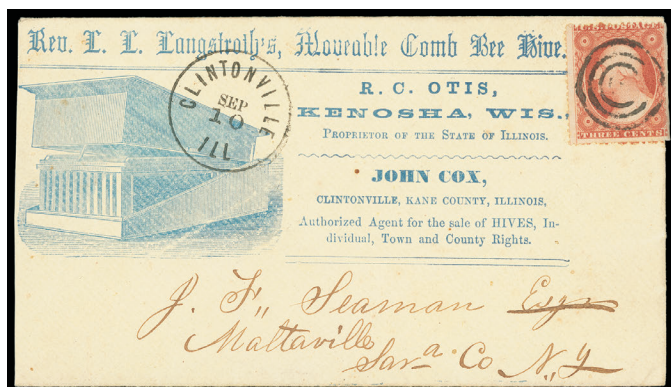 Rev. L. L. Langstroth's, Moveable Comb Bee Hive.
R. C. OTIS,
KENOSHA, WIS.,
PROPRIETOR OF THE STATE OF ILLINOIS.
JOHN COX,
CLINTONVILLE, KANE COUNTY, ILLINOIS,
Authorized Agent for the sale of HIVES, In-
dividual, Town and County Rights.
CLINTONVILLE
SEP
10
ILL
THREE CENTS
J. F. Seaman Esqr
Maltaville
Sara Co N.Y